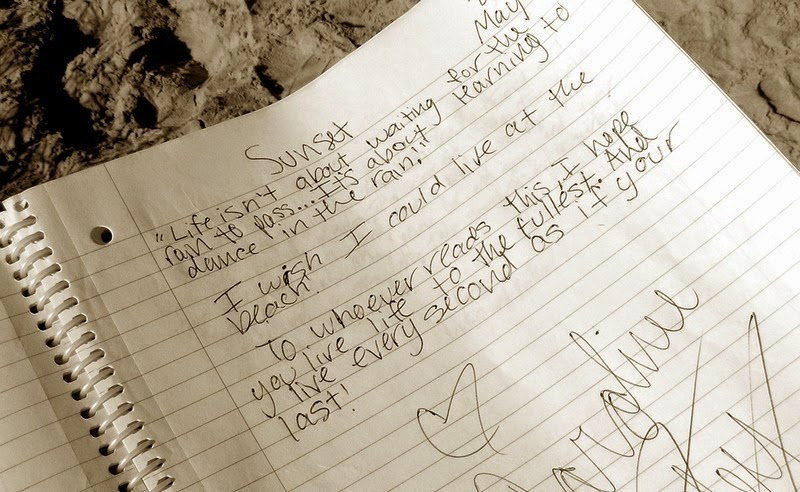 May
Sunset
"Life isn't about waiting for the
rain to pass... It's about learning to
dance in the rain!"
I wish I could live at the
beach
To whoever reads this, I hope
you live life to the fullest. And
live every second as if your
last!